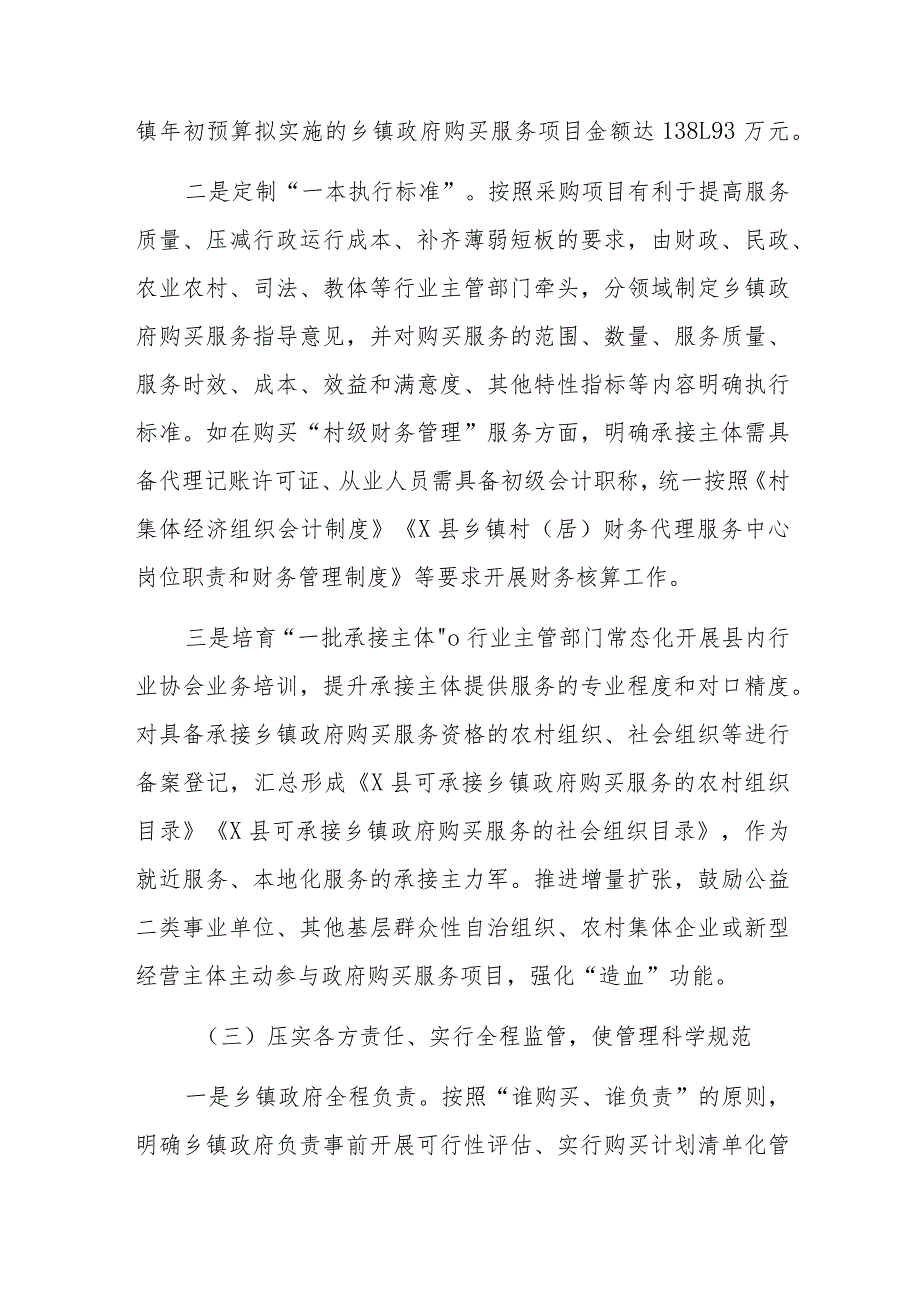 镇年初预算拟实施的乡镇政府购买服务项目金额达138L93万元。
二是定制“一本执行标准”。按照采购项目有利于提高服务
质量、压减行政运行成本、补齐薄弱短板的要求，由财政、民政、
农业农村、司法、教体等行业主管部门牵头，分领域制定乡镇政
府购买服务指导意见，并对购买服务的范围、数量、服务质量、
服务时效、成本、效益和满意度、其他特性指标等内容明确执行
标准。如在购买“村级财务管理”服务方面，明确承接主体需具
备代理记账许可证、从业人员需具备初级会计职称，统一按照《村
集体经济组织会计制度》《X县乡镇村（居）财务代理服务中心
岗位职责和财务管理制度》等要求开展财务核算工作。
三是培育“一批承接主体"o行业主管部门常态化开展县内行
业协会业务培训，提升承接主体提供服务的专业程度和对口精度。
对具备承接乡镇政府购买服务资格的农村组织、社会组织等进行
备案登记，汇总形成《X县可承接乡镇政府购买服务的农村组织
目录》《X县可承接乡镇政府购买服务的社会组织目录》，作为
就近服务、本地化服务的承接主力军。推进增量扩张，鼓励公益
二类事业单位、其他基层群众性自治组织、农村集体企业或新型
经营主体主动参与政府购买服务项目，强化“造血”功能。
（三）压实各方责任、实行全程监管，使管理科学规范
一是乡镇政府全程负责。按照“谁购买、谁负责”的原则，
明确乡镇政府负责事前开展可行性评估、实行购买计划清单化管